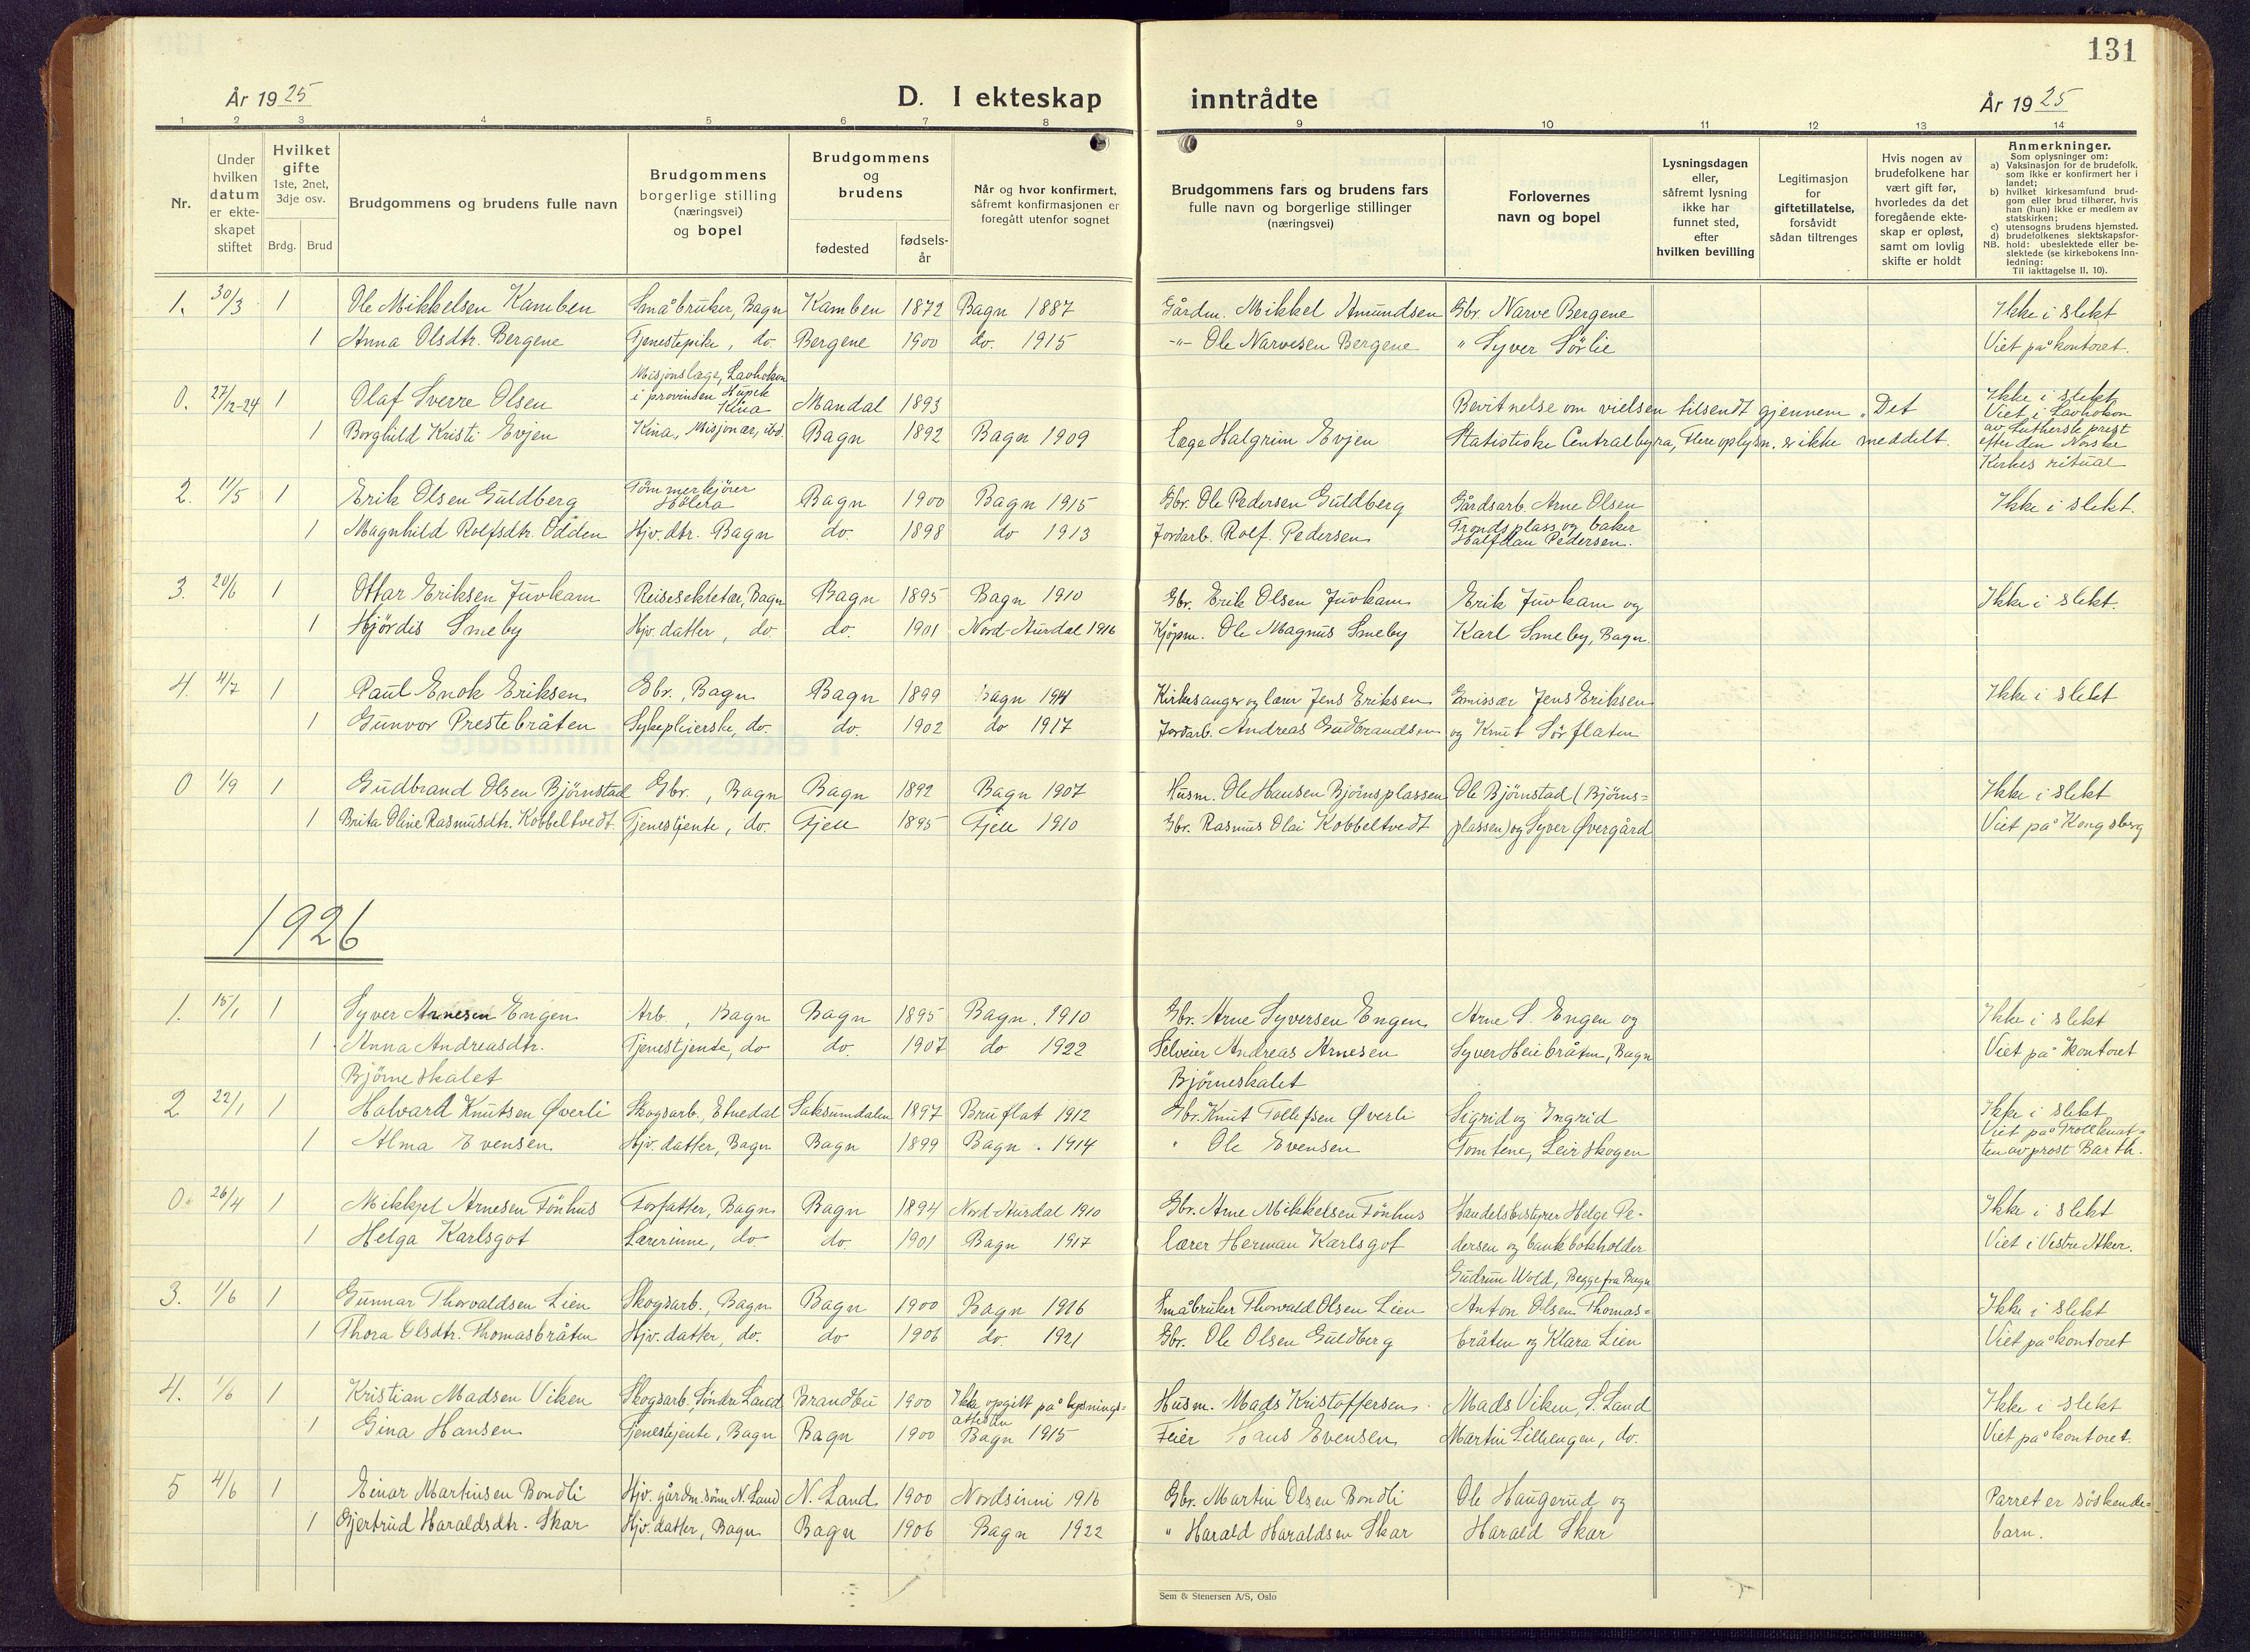 131
År 1925
D. I ekteskap
inntrådte
År 1925
1 2 3 4 5 6 7 8 9 10 11 12 13 14
Nr.
Under hvilken datum er ekteskapet stiftet
Hvilket gifte
1ste, 2net, 3dje osv.
Brdg. Brud
Brudgommens og brudens fulle navn
Brudgommens borgerlige stilling (næringsvei) og bopel
Brudgommens og brudens
fødested
fødselsår
Når og hvor konfirmert, såfremt konfirmasjonen er foregått utenfor sognet
Brudgommens fars og brudens fars fulle navn og borgerlige stillinger (næringsvei)
Forlovernes navn og bopel
Lysningsdagen eller, såfremt lysning ikke har funnet sted, efter hvilken bevilling
Legitimasjon for giftetillatelse, forsåvidt sådan tiltrenges
Hvis nogen av brudefolkene har vært gift før, hvorledes da det foregående ekteskap er opløst, samt om lovlig skifte er holdt
Anmerkninger.
Som oplysninger om:
a) Vaksinasjon for de brudefolk, som ikke er konfirmert her i landet;
b) hvilket kirkesamfund brudgom eller brud tilhører, hvis han (hun) ikke er medlem av statskirken;
c) utensogns brudens hjemsted.
d) brudefolkenes slektskapsforhold: ubeslektede eller beslektede (se kirkebokens innledning:
NB.
Til iakttagelse II. 10).
1. 30/3 1 Ole Mikkelsen Kamben Småbruker, Bagn Kamben 1872 Bagn 1887 Gårdm. Mikkel Amundsen Gbr. Narve Bergene Ikke i slekt
1 Anna Olsdtr. Bergene Tjenestepike, do Bergene 1900 do. 1915 -"- Ole Narvesen Bergene " Syver Sörlie Viet på kontoret.
0. 27/12-24 1 Olaf Sverre Olsen Misjonslæge, Laohokow i provinsen Hupeh Kina Mandal 1893 Bevitnelse om vielsen tilsendt gjennem "Det Ikke i slekt
1 Borghild Kristi Evjen Kina, Misjonær, ibd. Bagn 1892 Bagn 1909 Læge Halgrim Evjen Statistiske Centralbyrå, Flere oplysn. er ikke meddelt. Viet i Laohokow av Lutherske prest efter den Norske Kirkes ritual
2. 11/5 1 Erik Olsen Guldberg Tömmerkjörer Hölera Bagn 1900 Bagn 1915 Gbr. Ole Pedersen Guldberg Gårdsarb. Arne Olsen Ikke i slekt.
1 Magnhild Rolfsdtr. Odden Hjv. dtr. Bagn do. 1898 do 1913 Jordarb. Rolf. Pedersen Trondsplass og baker Halfdan Pedersen.
3. 20/6 1 Ottar Eriksen Juvkam Reisesekretær, Bagn Bagn 1895 Bagn 1910 Gbr. Erik Olsen Juvkam Erik Juvkam og Ikke i slekt.
1 Hjördis Smeby Hjv. datter, do. do. 1901 Nord-Aurdal 1916 Kjøpm. Ole Magnus Smeby Karl Smeby, Bagn.
4. 4/7 1 Paul Enok Eriksen Gbr., Bagn Bagn 1899 Bagn 1914 Kirkesanger og lærer Jens Eriksen Emissær Jens Eriksen Ikke i slekt
1 Gunvor Prestebråten Sykepleierske, do. do. 1902 do 1917 Jordarb. Andreas Gudbrandsen og Knut Sörflaten
0 1/9 1 Gudbrand Olsen Björnstad Gbr., Bagn Bagn 1892 Bagn 1907 Husm. Ole Hansen Björnsplassen Ole Björnstad (Björns= Ikke i slekt
1 Brita Oline Rasmusdtr. Kobbeltvedt Tjenestjente, do. Fjell 1895 Fjell 1910 Gbr. Rasmus Olai Kobbeltvedt plassen) og Syver Øvergård Viet på Kongsberg
1926
1. 15/1 1 Syver Arnesen Engen Arb., Bagn Bagn 1895 Bagn. 1910 Gbr. Arne Syversen Engen Arne S. Engen og Ikke i slekt
1 Anna Andreasdtr. Tjenestjente, do do. 1907 do 1922 Selveier Andreas Arnesen Syver Heiebråten, Bagn Viet på kontoret
Björneskalet Björneskalet
2 22/1 1 Halvard Knutsen Øverli Skogsarb., Etnedal Saksumdalen 1897 Bruflat 1912 Gbr. Knut Tollefsen Øverli Sigrid og Ingrid Ikke i slekt
1 Alma Evensen Hjv. datter, Bagn Bagn 1899 Bagn. 1914 " Ole Evensen Tomtene, Leirskogen Viet på Trollknatten av prost Barth.
0. 26/4 1 Mikkjel Arnesen Fönhus Forfatter, Bagn Bagn 1894 Nord-Aurdal 1910 Gbr. Arne Mikkelsen Fönhus Handelsbestyrer Helge Pe- Ikke i slekt
1 Helga Karlsgot Lærerinne, do do. 1901 Bagn 1917 Lærer Herman Karlsgot dersen og bankbokholder Viet i Vestre Aker.
Gudrun Wold, Begge fra Bagn
3. 1/6 1 Gunnar Thorvaldsen Lien Skogsarb., Bagn Bagn 1900 Bagn 1916 Småbruker Thorvald Olsen Lien Anton Olsen Thomas= Ikke i slekt
1 Thora Olsdtr. Thomasbråten Hjv. datter, do. do 1906 do. 1921 Gbr. Ole Olsen Guldberg bråten og Klara Lien Viet på kontoret
4. 1/6 1 Kristian Madsen Viken Skogsarb. Söndre Land Brandbu 1900 Ikke opgitt på lysnings= attesten Husm. Mads Kristoffersen Mads Viken, S. Land Ikke i slekt
1 Gina Hansen Tjenestejente, Bagn Bagn 1900 Bagn 1915 Feier Hans Evensen Martin Lillengen, do. Viet på kontoret.
5 4/6 1 Einar Martinsen Bondli Hjv. gårdm.sönn N. Land N. Land 1900 Nordsinni 1916 Gbr. Martin Olsen Bondli Ole Haugerud og Parret er söskende=
1 Gjertrud Haraldsdtr. Skar Hjv. datter, Bagn Bagn 1906 Bagn 1922 " Harald Haraldsen Skar Harald Skar barn.
Sem & Stenersen A/S, Oslo